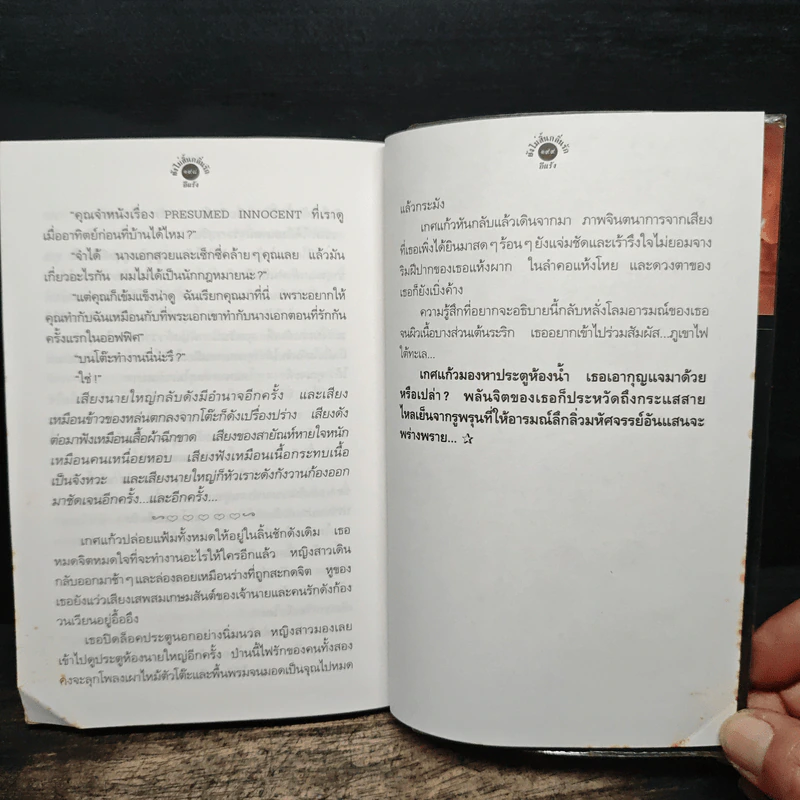 ยังไม่สิ้นกลิ่นรัก
๑๙๘
อีแร้ง
"คุณจำหนังเรื่อง PRESUMED INNOCENT ที่เราดู
เมื่ออาทิตย์ก่อนที่บ้านได้ไหม?"
"จำได้ นางเอกสวยและเซ็กซี่คล้ายๆคุณเลย แล้วมัน
เกี่ยวอะไรกัน ผมไม่ได้เป็นนักกฎหมายนะ?"
"แต่คุณก็เข้มแข็งน่าดู ฉันเรียกคุณมาที่นี่ เพราะอยากให้
คุณทำกับฉันเหมือนกับที่พระเอกเขาทำกับนางเอกตอนที่รักกัน
ครั้งแรกในออฟฟิศ"
"บนโต๊ะทำงานนี่น่ะรึ?"
"ใช่!"
เสียงนายใหญ่กลับดังมีอำนาจอีกครั้ง และเสียง
เหมือนข้าวของหล่นตกลงจากโต๊ะก็ดังเปรื่องปร่าง เสียงดัง
ต่อมาฟังเหมือนเสื้อผ้าฉีกขาด เสียงของสายัณห์หายใจหนัก
เหมือนคนเหนื่อยหอบ เสียงฟังเหมือนเนื้อกระทบเนื้อ
เป็นจังหวะ และเสียงนายใหญ่ก็หัวเราะดังกังวานก้องออก
มาชัดเจนอีกครั้ง...และอีกครั้ง...
เกศแก้วปล่อยแฟ้มทั้งหมดให้อยู่ในลิ้นชักดังเดิม เธอ
หมดจิตหมดใจที่จะทำงานอะไรให้ใครอีกแล้ว หญิงสาวเดิน
กลับออกมาช้าๆและล่องลอยเหมือนร่างที่ถูกสะกดจิต หูของ
เธอยังแว่วเสียงเสพสมเกษมสันต์ของเจ้านายและคนรักดังก้อง
วนเวียนอยู่อื้ออึง
เธอปิดล็อคประตูนอกอย่างนิ่มนวล หญิงสาวมองเลย
เข้าไปดูประตูห้องนายใหญ่อีกครั้ง ป่านนี้ไฟรักของคนทั้งสอง
คงจะลุกโพลงเผาไหม้ตัวโต๊ะและพื้นพรมจนมอดเป็นจุณไปหมด
ยังไม่สิ้นกลิ่นรัก
๑๙๙
อีแร้ง
แล้วกระมัง
เกศแก้วหันกลับแล้วเดินจากมา ภาพจินตนาการจากเสียง
ที่เธอเพิ่งได้ยินมาสดๆร้อนๆยังแจ่มชัดและเร้ารึงใจไม่ยอมจาง
ริมฝีปากของเธอแห้งผาก ในลำคอแห้งโหย และดวงตาของ
เธอก็ยังเบิ่งค้าง
ความรู้สึกที่อยากจะอธิบายนี้กลับหลั่งโลมอารมณ์ของเธอ
จนผิวเนื้อบางส่วนเต้นระริก เธออยากเข้าไปร่วมสัมผัส...ภูเขาไฟ
ใต้ทะเล...
เกศแก้วมองหาประตูห้องน้ำ เธอเอากุญแจมาด้วย
หรือเปล่า? พลันจิตของเธอก็ประหวัดถึงกระแสสาย
ไหลเย็นจากรูพรุนที่ให้อารมณ์ลึกลิ่วมหัศจรรย์อันแสนจะ
พร่างพราย... ☆